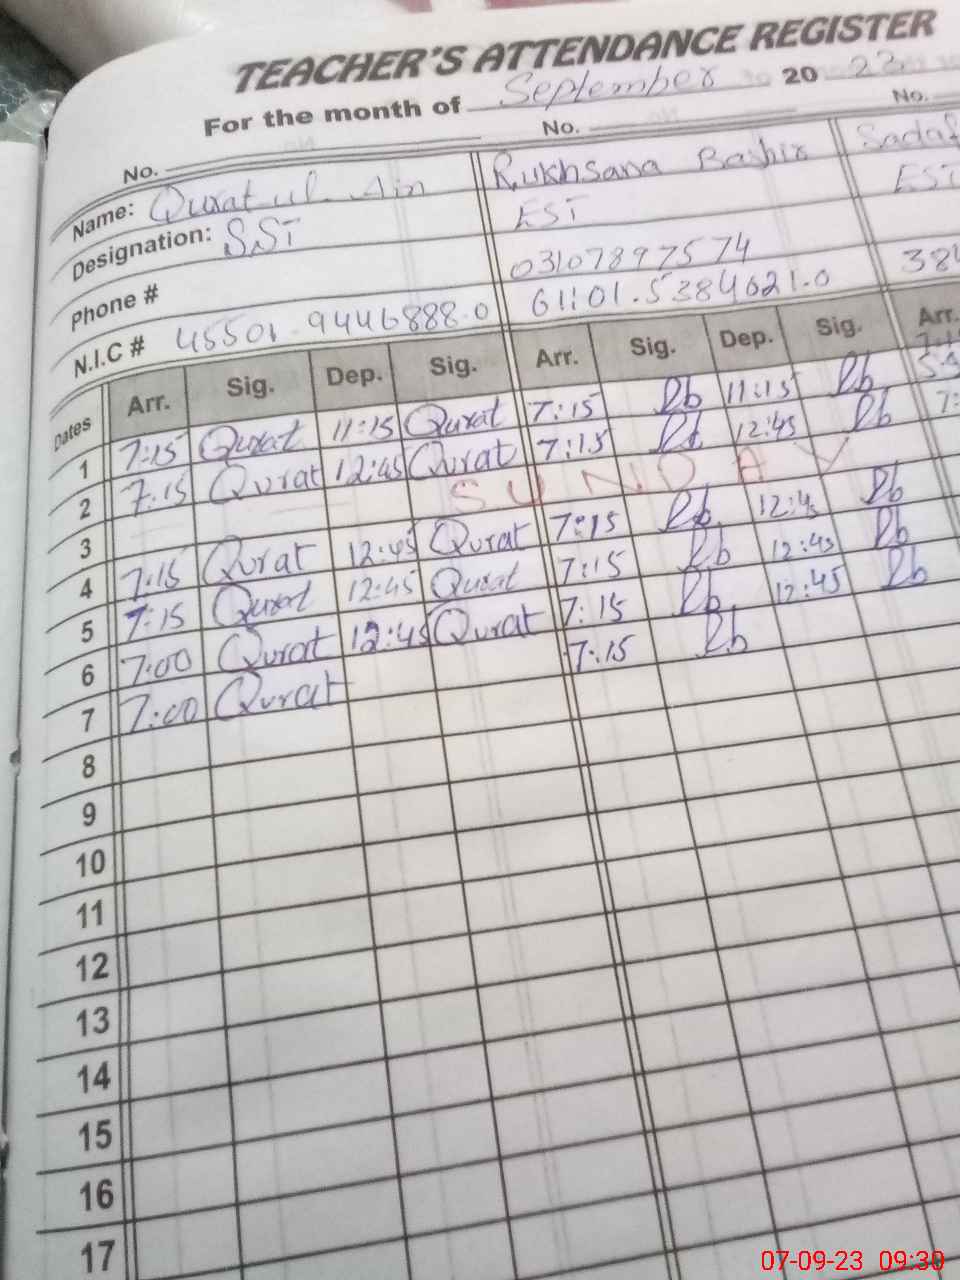 TEACHER'S ATTENDANCE REGISTER
For the month of September 20 23
No. No. No.
Name: Qurat ul Ain Rukhsana Bashir Sadaf
Designation: SST EST EST
Phone # 03107897574
N.I.C # 45501-9446888-0 61101-5384621-0 384
Dates Arr. Sig. Dep. Sig. Arr. Sig. Dep. Sig. Arr.
1 7:15 Qurat 11:15 Qurat 7:15 Rb 11:15 Rb
2 7:15 Qurat 12:45 Qurat 7:15 Rb 12:45 Rb 7:
3 SUNDAY
4 7:15 Qurat 12:45 Qurat 7:15 Rb 12:45 Rb
5 7:15 Qurat 12:45 Qurat 7:15 Rb 12:45 Rb
6 7:00 Qurat 12:45 Qurat 7:15 Rb 12:45 Rb
7 7:00 Qurat 7:15 Rb
8
9
10
11
12
13
14
15
16
17
07-09-23 09:30